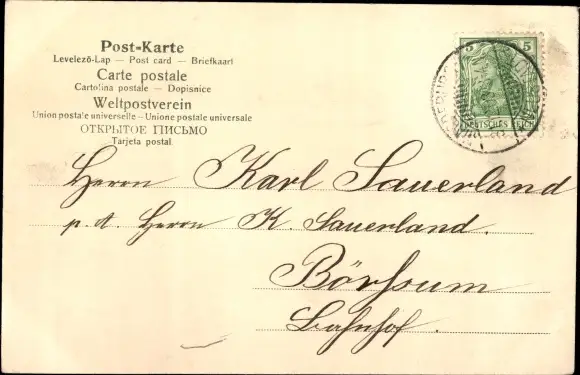 Post-Karte
Levelező-Lap — Post card — Briefkaart
Carte postale
Cartolina postale — Dopisnice
Weltpostverein
Union postale universelle — Unione postale universale
ОТКРЫТОЕ ПИСЬМО
Tarjeta postal
5 5
DEUTSCHES REICH
Herrn Karl Sauerland
p. A. Herrn K. Sauerland.
Börßum
Bahnhof.